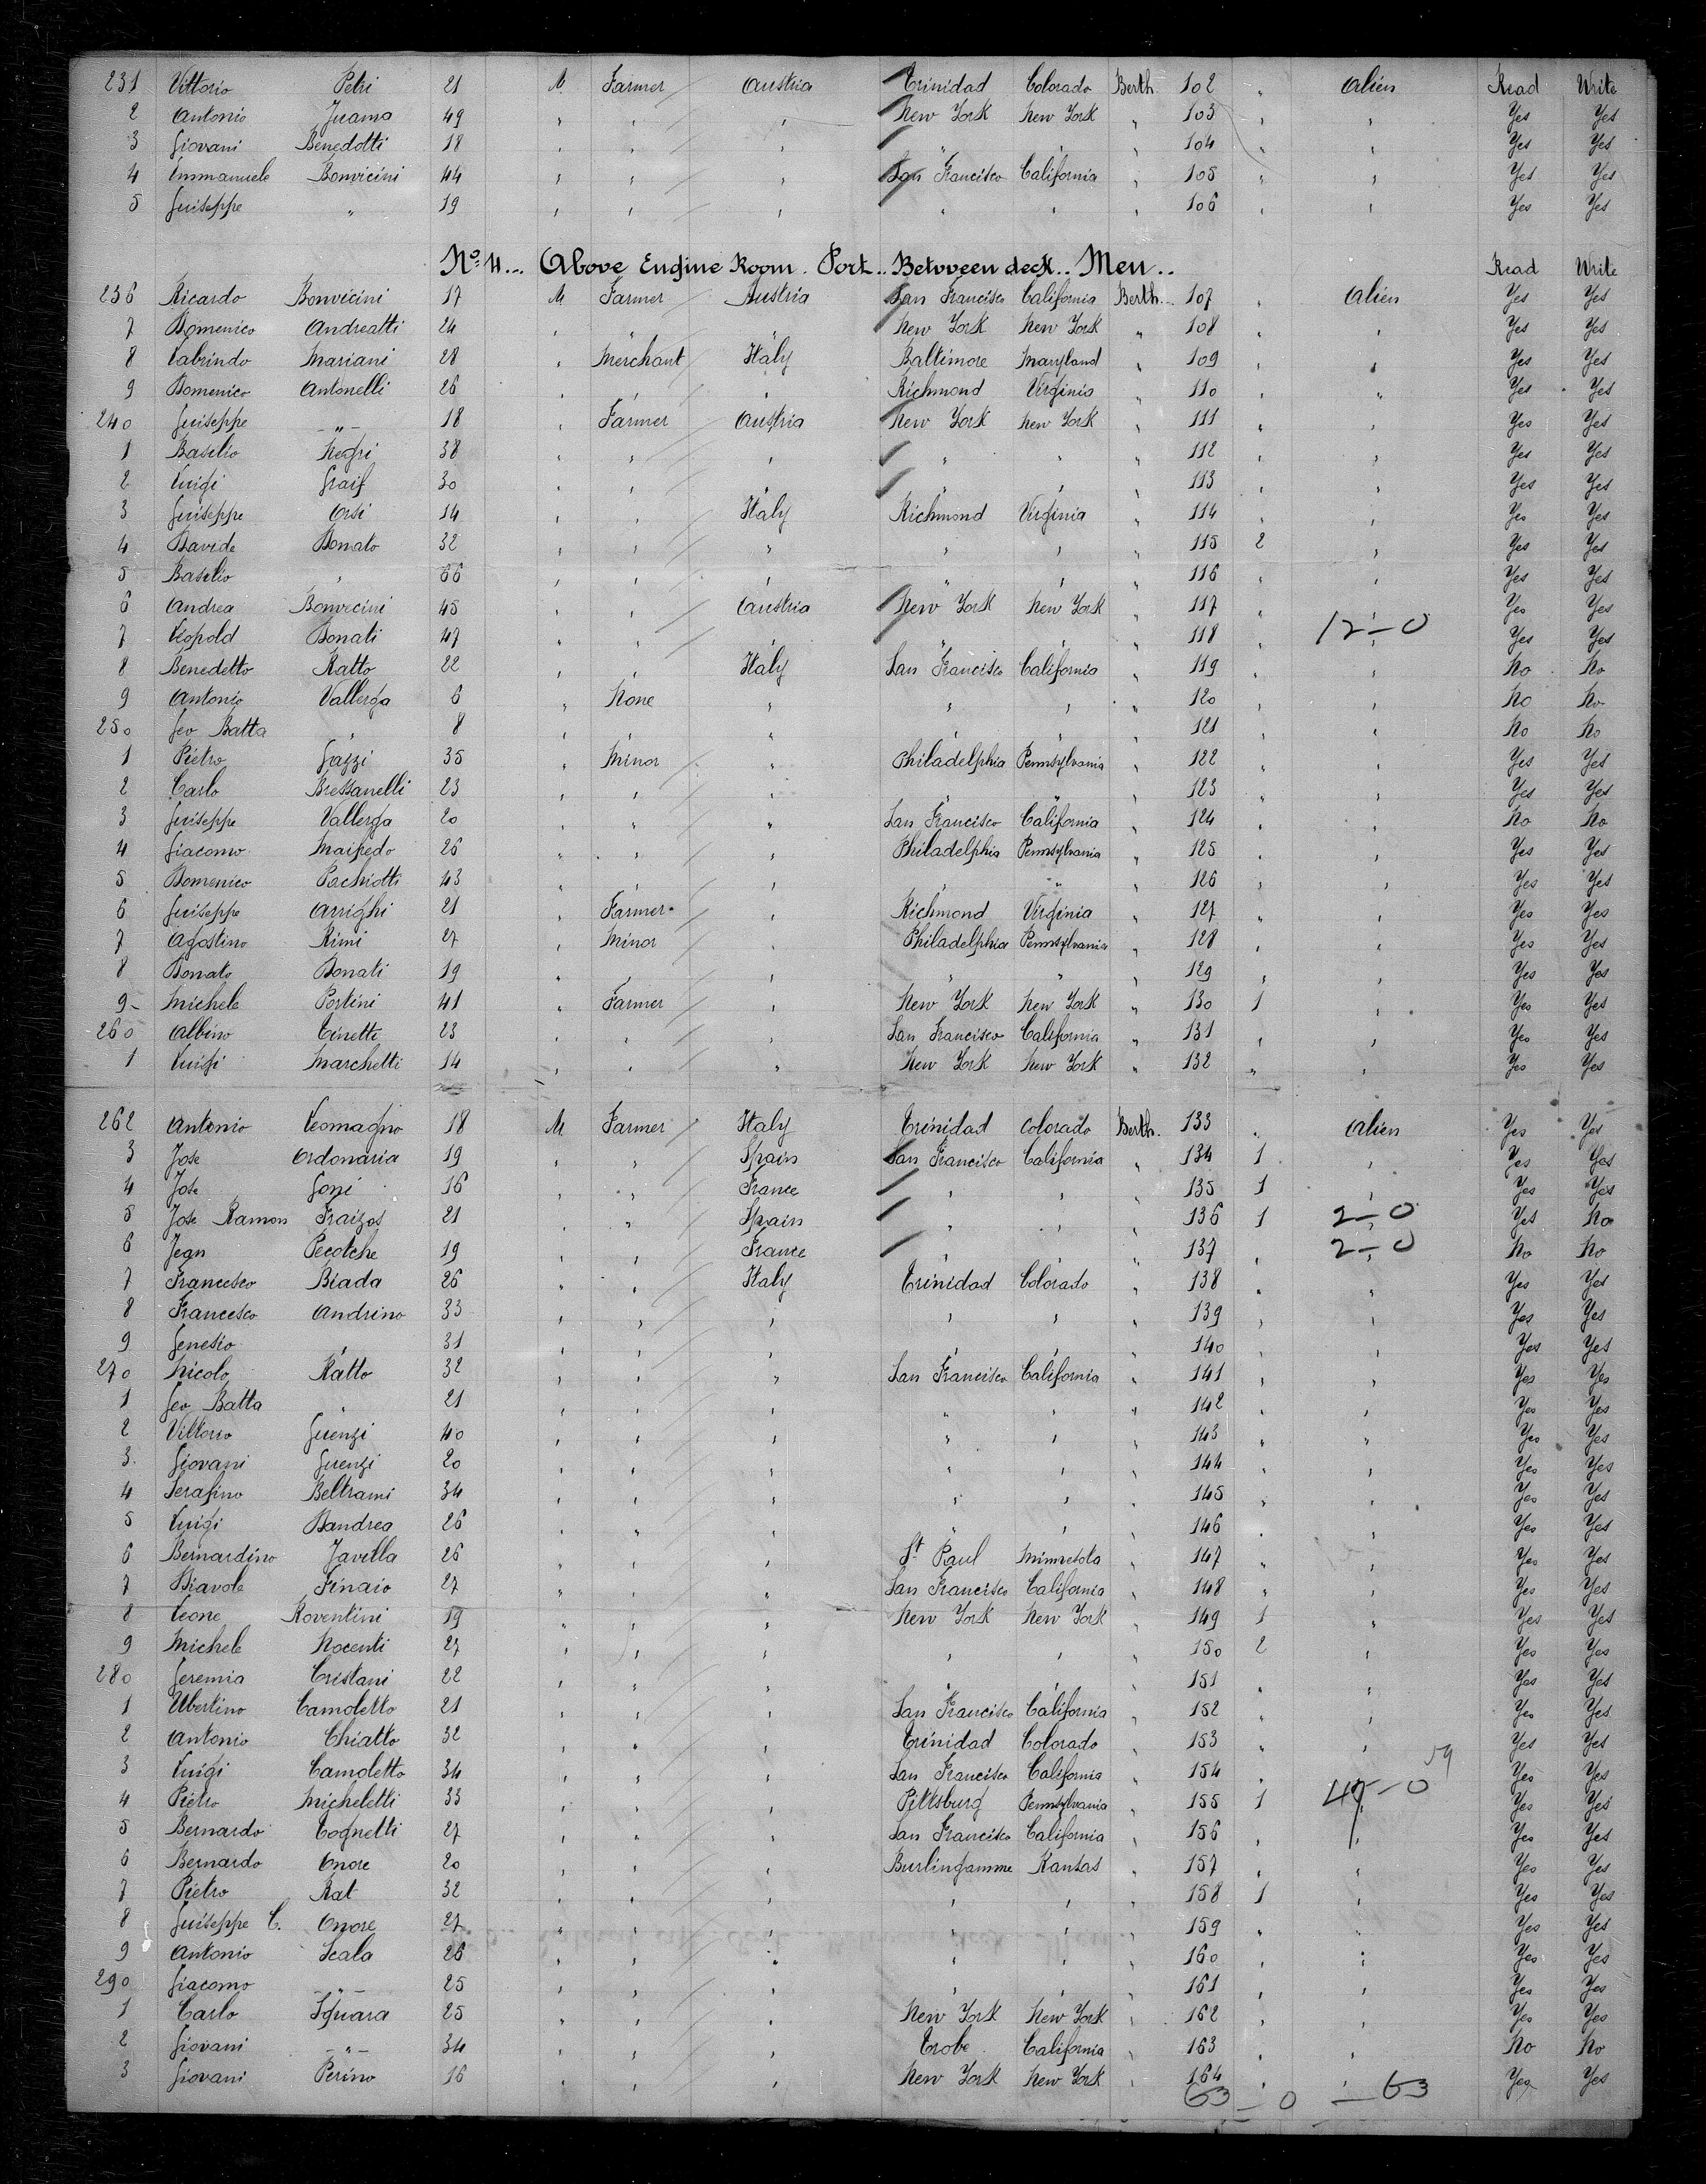 231 Vittorio Petri 21 M. Farmer Austria Trinidad Colorado Berth 102 " Alien Read Write
2 Antonio Juama 49 " " " New York New York " 103 " " Yes Yes
3 Giovani Benedotti 18 " " " " " " 104 " " Yes Yes
4 Emmanuele Bonvicini 44 " " " San Francisco California " 105 " " Yes Yes
5 Guiseppe " 19 " " " " " " 106 " " Yes Yes
No. 4... Above Engine Room. Port.. Betvveen deck.. Men.. Read Write
236 Ricardo Bonvicini 17 M Farmer Austria San Francisco California Berth... 107 " Alien Yes Yes
7 Domenico Andreatti 24 " " " New York New York " 108 " " Yes Yes
8 Labrindo Mariani 28 " Merchant Italy Baltimore Maryland " 109 " " Yes Yes
9 Domenico Antonelli 26 " " " Richmond Virginia " 110 " " Yes Yes
240 Guiseppe -"- 18 " Farmer Austria New York New York " 111 " " Yes Yes
1 Basilio Negri 38 " " " " " " 112 " " Yes Yes
2 Luigi Graif 30 " " " " " " 113 " " Yes Yes
3 Guiseppe Orsi 14 " " Italy Richmond Virginia " 114 " " Yes Yes
4 Davide Donato 32 " " " " " " 115 2 " Yes Yes
5 Basilio " 66 " " " " " " 116 " " Yes Yes
6 Andrea Bonvecini 45 " " Austria New York New York " 117 " " Yes Yes
7 Leopold Donati 47 " " " " " " 118 " 12-0 Yes Yes
8 Benedetto Ratto 22 " " Italy San Francisco California " 119 " " No No
9 Antonio Vallerga 6 " None " " " " 120 " " No No
250 Geo Batta " 8 " " " " " " 121 " " No No
1 Pietro Gazzi 35 " Minor " Philadelphia Pennsylvania " 122 " " Yes Yes
2 Carlo Bressanelli 23 " " " " " " 123 " " Yes Yes
3 Guiseppe Vallerga 20 " " " San Francisco California " 124 " " No No
4 Giacomo Maifredo 26 " " " Philadelphia Pennsylvania " 125 " " Yes Yes
5 Domenico Pachiotti 43 " " " " " " 126 " " Yes Yes
6 Guiseppe Arrighi 21 " Farmer " Richmond Virginia " 127 " " Yes Yes
7 Agostino Rimi 27 " Minor " Philadelphia Pennsylvania " 128 " " Yes Yes
8 Donato Donati 19 " " " " " " 129 " " Yes Yes
9- Michele Portini 41 " Farmer " New York New York " 130 1 " Yes Yes
260 Albino Tinetti 23 " " " San Francisco California " 131 " " Yes Yes
1 Luigi Marchetti 14 " " " New York New York " 132 " " Yes Yes
262 Antonio Leomagno 18 M Farmer Italy Trinidad Colorado Berth. 133 " Alien Yes Yes
3 Jose Ordonaria 19 " " Spain San Francisco California " 134 1 " Yes Yes
4 Jose Goni 16 " " France " " " 135 1 " Yes Yes
5 Jose Ramon Fraizos 21 " " Spain " " " 136 1 2-0 Yes No
6 Jean Pecotche 19 " " France " " " 137 " 2-0 No No
7 Francesco Biada 26 " " Italy Trinidad Colorado " 138 " " Yes Yes
8 Francesco Andrino 33 " " " " " " 139 " " Yes Yes
9 Genesio " 31 " " " " " " 140 " " Yes Yes
270 Nicolo Ratto 32 " " " San Francisco California " 141 " " Yes Yes
1 Geo Batta " 21 " " " " " " 142 " " Yes Yes
2 Vittorio Guenzi 40 " " " " " " 143 " " Yes Yes
3 Giovani Guenzi 20 " " " " " " 144 " " Yes Yes
4 Serafino Beltrami 34 " " " " " " 145 " " Yes Yes
5 Luigi Dandrea 26 " " " " " " 146 " " Yes Yes
6 Bernardino Javilla 26 " " " St. Paul Minnesota " 147 " " Yes Yes
7 Diavole Finaio 27 " " " San Francisco California " 148 " " Yes Yes
8 Leone Roventini 19 " " " New York New York " 149 1 " Yes Yes
9 Michele Nocenti 27 " " " " " " 150 2 " Yes Yes
280 Geremia Cristani 22 " " " " " " 151 " " Yes Yes
1 Ubertino Camoletto 21 " " " San Francisco California " 152 " " Yes Yes
2 Antonio Chiatto 32 " " " Trinidad Colorado " 153 " " Yes Yes
3 Luigi Camoletto 34 " " " San Francisco California " 154 " " 59 Yes Yes
4 Pietro Micheletti 33 " " " Pittsburg Pennsylvania " 155 1 47-0 Yes Yes
5 Bernardo Tognetti 27 " " " San Francisco California " 156 " " Yes Yes
6 Bernardo Onore 20 " " " Burlingamme Kansas " 157 " " Yes Yes
7 Pietro Rat 32 " " " " " " 158 1 " Yes Yes
8 Guiseppe C. Onore 27 " " " " " " 159 " " Yes Yes
9 Antonio Scala 26 " " " " " " 160 " " Yes Yes
290 Giacomo -"- 25 " " " " " " 161 " " Yes Yes
1 Carlo Squara 25 " " " New York New York " 162 " " Yes Yes
2 Giovani -"- 34 " " " Trobe California " 163 " " No No
3 Giovani Perino 16 " " " New York New York " 164 " " Yes Yes
63 - 0 - 63